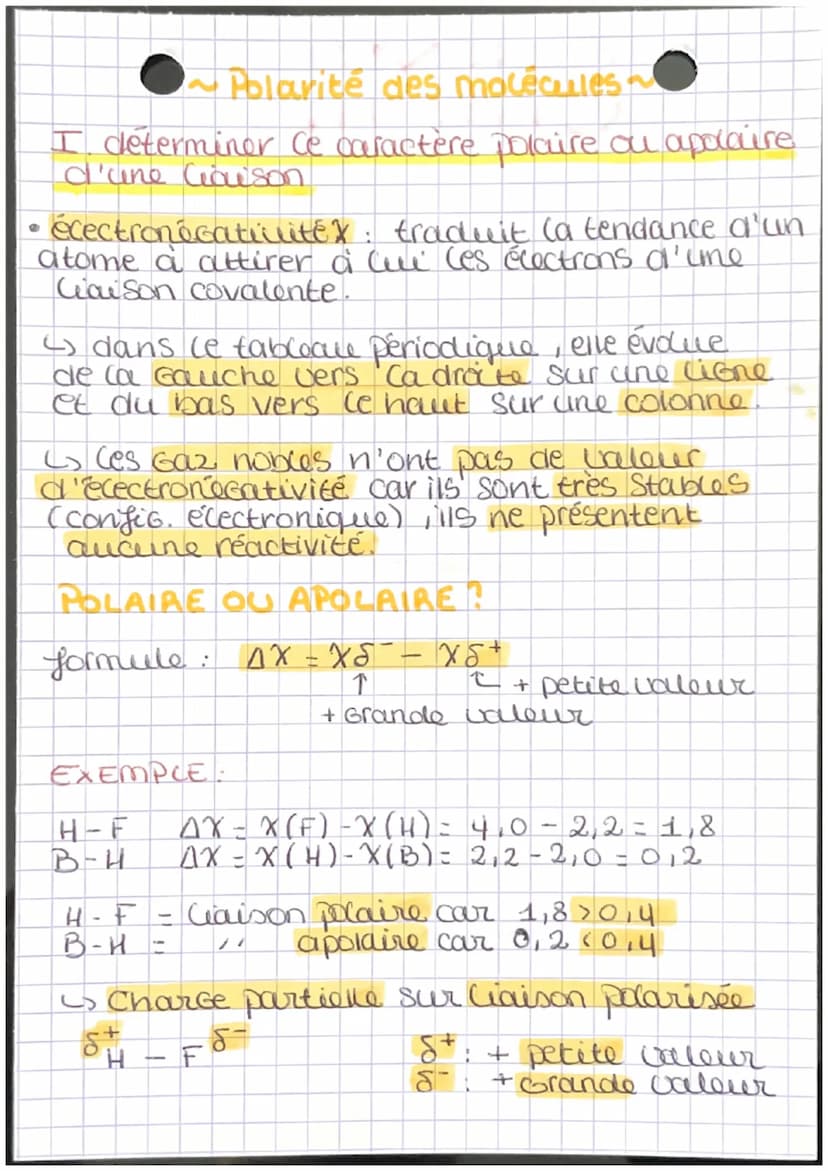 ~ Polarité des molécules ~
I. déterminer le caractère polaire ou apolaire
d'une liaison
• électronégativité χ : traduit la tendance d'un
atome à attirer à lui les électrons d'une
liaison covalente.
↳ dans le tableau périodique, elle évolue
de la gauche vers la droite sur une ligne
et du bas vers le haut sur une colonne.
↳ les gaz nobles n'ont pas de valeur
d'électronégativité car ils sont très stables
(config. électronique), ils ne présentent
aucune réactivité.
POLAIRE OU APOLAIRE ?
formule : Δχ = χδ⁻ − χδ⁺
↑ ↑ + petite valeur
+ grande valeur
EXEMPLE :
H-F Δχ = χ(F) - χ(H) = 4,0 - 2,2 = 1,8
B-H Δχ = χ(H) - χ(B) = 2,2 - 2,0 = 0,2
H-F = liaison polaire car 1,8 > 0,4
B-H = '' apolaire car 0,2 < 0,4
↳ Charge partielle sur liaison polarisée
δ⁺H - Fδ⁻ δ⁺ : + petite valeur
δ⁻ : + grande valeur